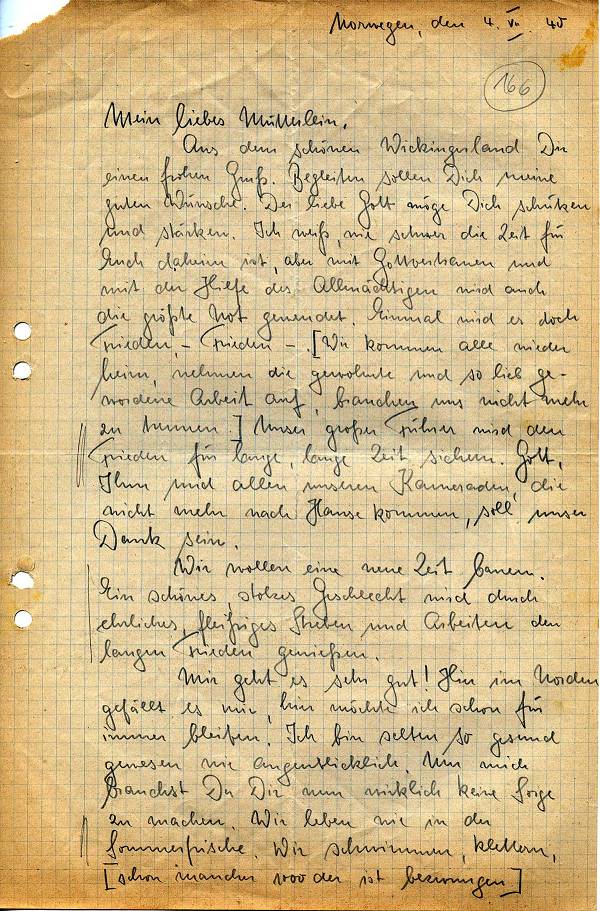 Norwegen, den 4. VII. 40
166
Mein liebes Mütterlein,
Aus dem schönen Wickingerland Dir
einen frohen Gruß. Begleiten sollen Dich meine
guten Wünsche. Der liebe Gott möge Dich schützen
und stärken. Ich weiß, wie schwer die Zeit für
Euch daheim ist, aber mit Gottvertrauen und
mit der Hilfe des Allmächtigen wird auch
die größte Not gewendet. Einmal wird es doch
Frieden, - Frieden -. [Wir kommen alle wieder
heim, nehmen die gewohnte und so lieb ge-
wordene Arbeit auf, brauchen uns nicht mehr
zu trennen.] Unser großer Führer wird den
Frieden für lange, lange Zeit sichern. Gott,
Ihm und allen unseren Kameraden, die
nicht mehr nach Hause kommen, soll unser
Dank sein.
Wir wollen eine neue Zeit bauen.
Ein schönes, stolzes Geschlecht wird durch
ehrliches, fleißiges Streben und Arbeiten den
langen Frieden genießen.
Mir geht es sehr gut! Hier im Norden
gefällt es mir, hier möchte ich schon für
immer bleiben. Ich bin selten so gesund
gewesen wie augenblicklich. Um mich
brauchst Du Dir nun wirklich keine Sorge
zu machen. Wir leben wie in der
Sommerfrische. Wir schwimmen, klettern,
[schon mancher 1000 der ist bezwungen]